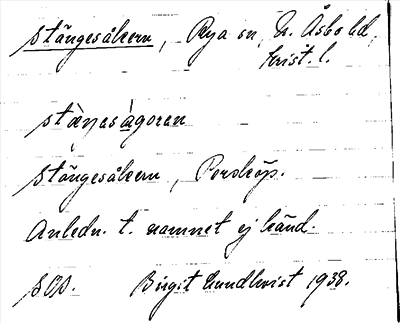 Stängesåkern, Rya sn, N. Åsbo hd,
Krist. l.
stæŋesågoren
Stängesåkern, Porsköp.
Anledn. t. namnet ej känd.
Birgit Lundkvist 1938.